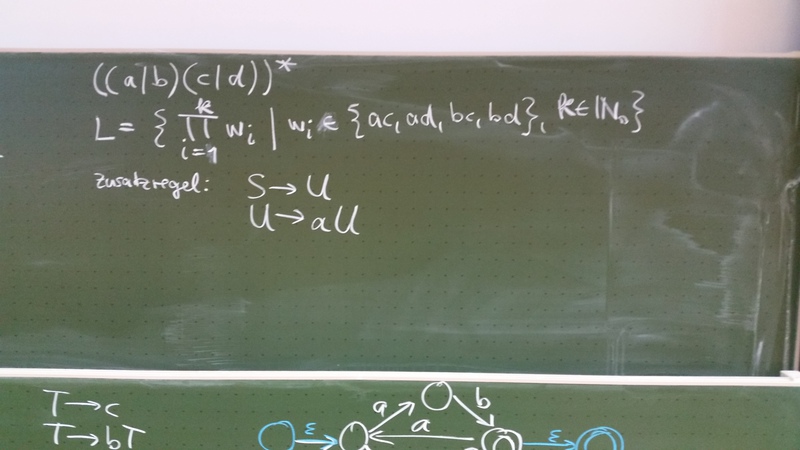 ((a|b)(c|d))*
k
L = { ∏ wᵢ | wᵢ ∈ {ac, ad, bc, bd}, k∈ℕ₀}
i=1
Zusatzregel: S→U
U→aU
T→c
T→bT
a b
ε a ε